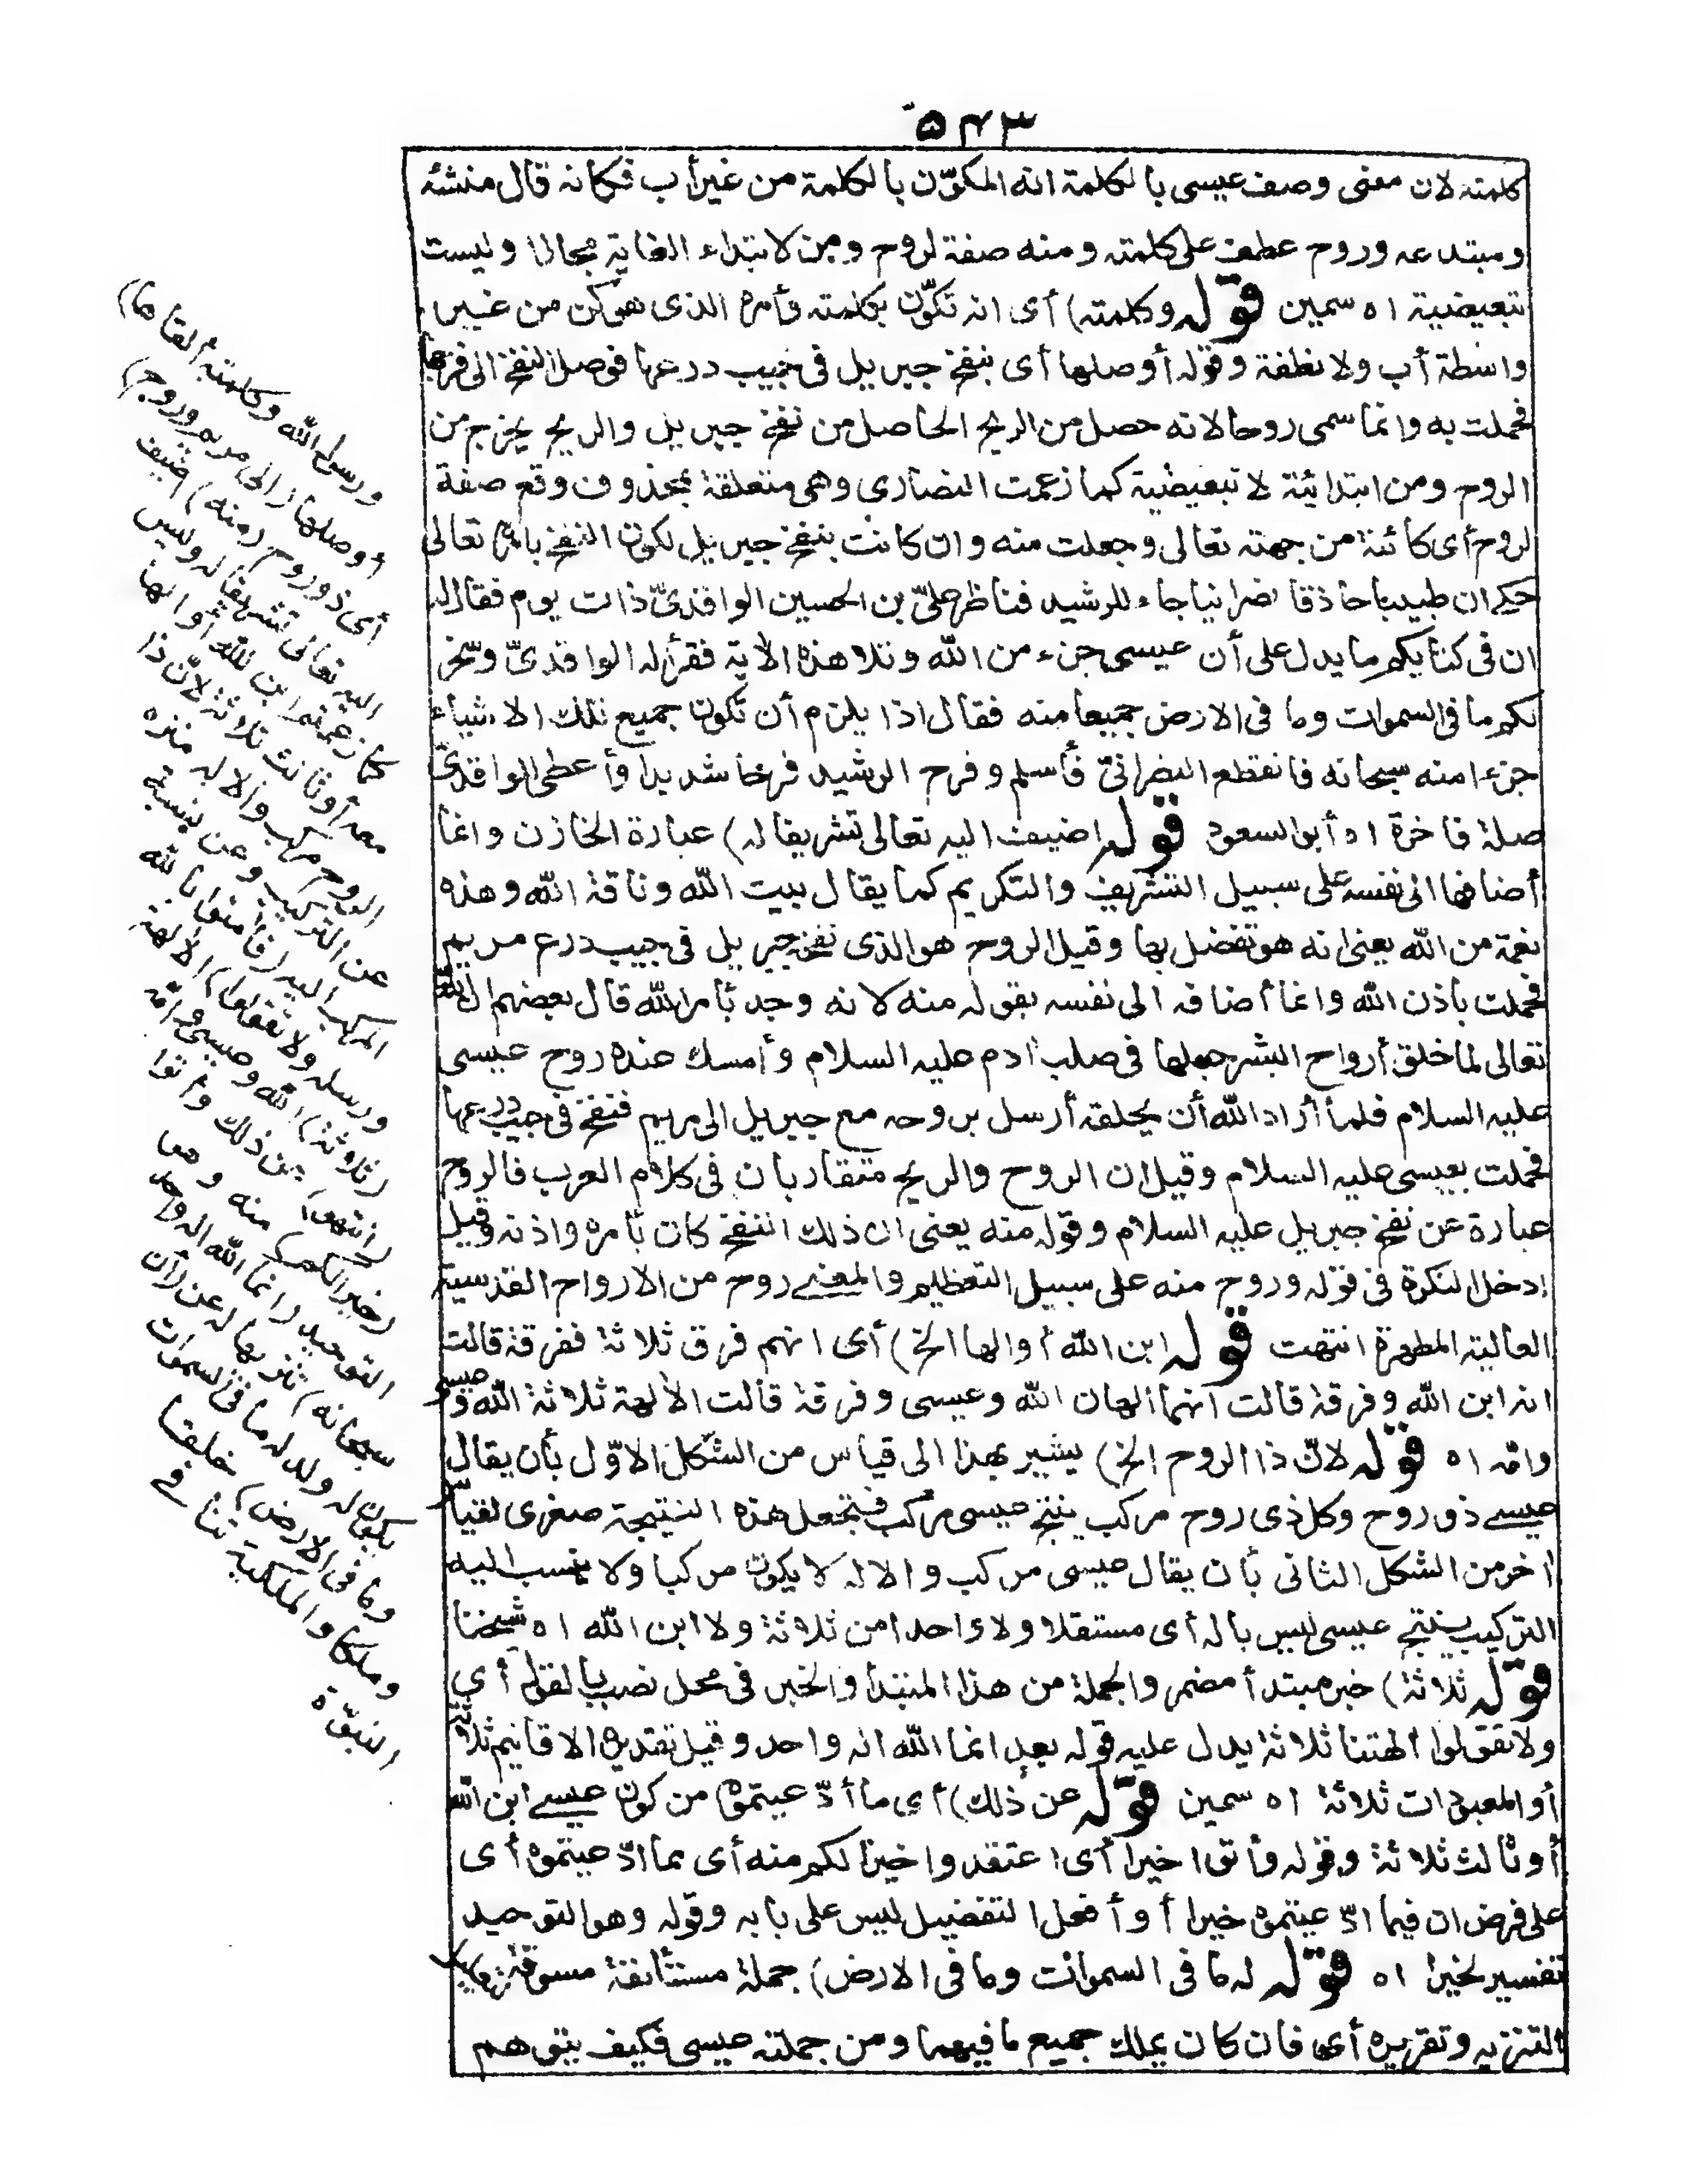 ٥٤٣
كلمته لان معنى وصف عيسى بالكلمة انه المكوّن بالكلمة من غير أب فكانه قال منشئه
ومبتدعه وروح عطف على كلمته ومنه صفة لروح ومن لابتداء الغاية مجازا وليست
تبعيضية اه سمين قوله وكلمته) أى انه تكوّن بكلمته وأمره الذى هو كن من غير
واسطة أب ولا نطفة وقوله أوصلها أى بنفخ جبريل فى جيب درعها فوصل النفخ الى فرجها
فحملت به وانما سمى روحا لانه حصل من الريح الحاصل من نفخ جبريل والريح يخرج من
الروح ومن ابتدائية لا تبعيضية كما زعمت النصارى وهى متعلقة بمحذوف وقع صفة
لروح أى كائنة من جهته تعالى وجعلت منه وان كانت بنفخ جبريل لكون النفخ بأمره تعالى
حكى ان طبيبا حاذقا نصرانيا جاء للرشيد فناظر علىّ بن الحسين الواقدىّ ذات يوم فقال له
ان فى كتابكم ما يدل على أن عيسى جزء من الله وتلا هذه الآية فقرأ له الواقدىّ وسخر
لكم ما فى السموات وما فى الارض جميعا منه فقال اذا يلزم أن تكون جميع تلك الاشياء
جزءا منه سبحانه فانقطع النصرانىّ فأسلم وفرح الرشيد فرحا شديدا وأعطى الواقدىّ
صلة فاخرة اه أبو السعود قوله اضيف اليه تعالى تشريفا له) عبارة الخازن وانما
أضافها الى نفسه على سبيل التشريف والتكريم كما يقال بيت الله وناقة الله وهذه
نعمة من الله يعنى انه هو تفضل بها وقيل الروح هو الذى نفخ جبريل فى جيب درع مريم
فحملت باذن الله وانما أضافه الى نفسه بقوله منه لانه وجد بأمر الله قال بعضهم ان الله
تعالى لما خلق أرواح البشر جعلها فى صلب آدم عليه السلام وأمسك عنده روح عيسى
عليه السلام فلما أراد الله أن يخلقه أرسل بروحه مع جبريل الى مريم فنفخ فى جيب درعها
فحملت بعيسى عليه السلام وقيل ان الروح والريح متقاربان فى كلام العرب فالروح
عبارة عن نفخ جبريل عليه السلام وقوله منه يعنى ان ذلك النفخ كان بأمره واذنه وقيل
ادخل النكرة فى قوله وروح منه على سبيل التعظيم والمعنى روح من الارواح القدسية
العالية المطهرة انتهت قوله ابن الله أوالها الخ) أى انهم فرق ثلاثة ففرقة قالت
انه ابن الله وفرقة قالت انهما الهان الله وعيسى وفرقة قالت الآلهة ثلاثة الله وعيسى
وامّه اه قوله لانّ ذا الروح الخ) يشير بهذا الى قياس من الشكل الاوّل بأن يقال
عيسى ذو روح وكل ذى روح مركب ينتج عيسى مركب فتجعل هذه النتيجة صغرى لقياس
آخر من الشكل الثانى بأن يقال عيسى مركب والاله لا يكون مركبا ولا ينسب اليه
التركيب ينتج عيسى ليس باله أى مستقلا ولا واحدا من ثلاثة ولا ابن الله اه شيخنا
قوله ثلاثة) خبر مبتدأ مضمر والجملة من هذا المبتدأ والخبر فى محل نصب بالقول أى
ولا تقولوا آلهتنا ثلاثة يدل عليه قوله بعد انما الله اله واحد وقيل تقديره الاقانيم ثلاثة
أو المعبودات ثلاثة اه سمين قوله عن ذلك) أى ما أدّعيتموه من كون عيسى ابن الله
أو ثالث ثلاثة وقوله وأتوا خيرا أى اعتقدوا خيرا لكم منه أى مما ادّعيتموه أى
على فرض ان فيما ادّعيتموه خيرا أو أفعل التفضيل ليس على بابه وقوله وهو التوحيد
تفسير لخيرا اه قوله له ما فى السموات وما فى الارض) جملة مستأنفة مسوقة لتعليل
التنزيه وتقريره أى فان كان يملك جميع ما فيهما ومن جملته عيسى فكيف يتوهم
ورسول الله وكلمته ألقاها)
أوصلها (الى مريم وروح)
أى ذو روح (منه) اضيف
اليه تعالى تشريفا له وليس
كما زعمتم ابن الله أوالها
معه أو ثالث ثلاثة لانّ ذا
الروح مركب والاله منزه
عن التركيب وعن نسبة
المركب اليه (فآمنوا بالله
ورسله ولا تقولوا) الآلهة
(ثلاثة) الله وعيسى وامّه
(انتهوا) عن ذلك وأتوا
(خيرا لكم) منه وهو
التوحيد (انما الله اله واحد
سبحانه) تنزيها له عن (أن
يكون له ولد له ما فى السموات
وما فى الارض) خلقا
وملكا والملكية تنافى
النبوّة